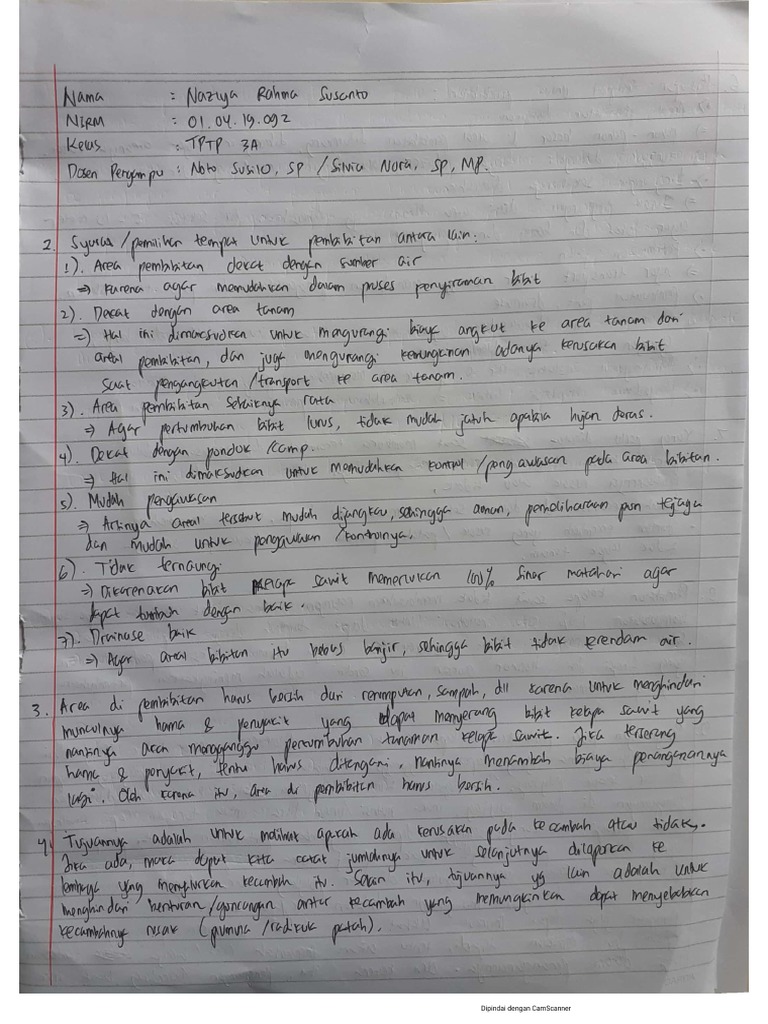 Nama : Naziya Rahma Susanto
NIRM : 01.04.19.092
Kelas : TPTP 3A
Dosen Pengampu : Noto Susilo, SP / Silvia Nora, SP, MP.
2. Syarat /pemilihan tempat untuk pembibitan antara lain:
1). Area pembibitan dekat dengan sumber air
⇒ Karena agar memudahkan dalam proses penyiraman bibit
2). Dekat dengan area tanam
⇒ Hal ini dimaksudkan untuk mengurangi biaya angkut ke area tanam dari
areal pembibitan, dan juga mengurangi kemungkinan adanya kerusakan bibit
saat pengangkutan /transport ke area tanam.
3). Area pembibitan sebaiknya rata
⇒ Agar pertumbuhan bibit lurus, tidak mudah jatuh apabila hujan deras.
4). Dekat dengan pondok /camp.
⇒ Hal ini dimaksudkan untuk memudahkan kontrol /pengawasan pada area bibitan.
5). Mudah pengawasan
⇒ Artinya areal tersebut mudah dijangkau, sehingga aman, pemeliharaan pun tejaga
dan mudah untuk pengawasan /kontrolnya.
6). Tidak ternaungi
⇒ Dikarenakan bibit kelapa sawit memerlukan 100% sinar matahari agar
dapat tumbuh dengan baik.
7). Drainase baik
⇒ Agar areal bibitan itu bebas banjir, sehingga bibit tidak terendam air.
3. Area di pembibitan harus bersih dari rerumputan, sampah, dll karena untuk menghindari
munculnya hama & penyakit yang dapat menyerang bibit kelapa sawit yang
nantinya akan mengganggu pertumbuhan tanaman kelapa sawit. Jika terserang
hama & penyakit, tentu harus ditangani, nantinya menambah biaya penanganannya
lagi. Oleh karena itu, area di pembibitan harus bersih.
4. Tujuannya adalah untuk melihat apakah ada kerusakan pada kecambah atau tidak.
Jika ada, maka dapat kita catat jumlahnya untuk selanjutnya dilaporkan ke
lembaga yang menyalurkan kecambah itu. Selain itu, tujuannya yg lain adalah untuk
menghindari benturan /guncangan antar kecambah yang memungkinkan dapat menyebabkan
kecambahnya rusak (plumula /radikula patah).
Dipindai dengan CamScanner